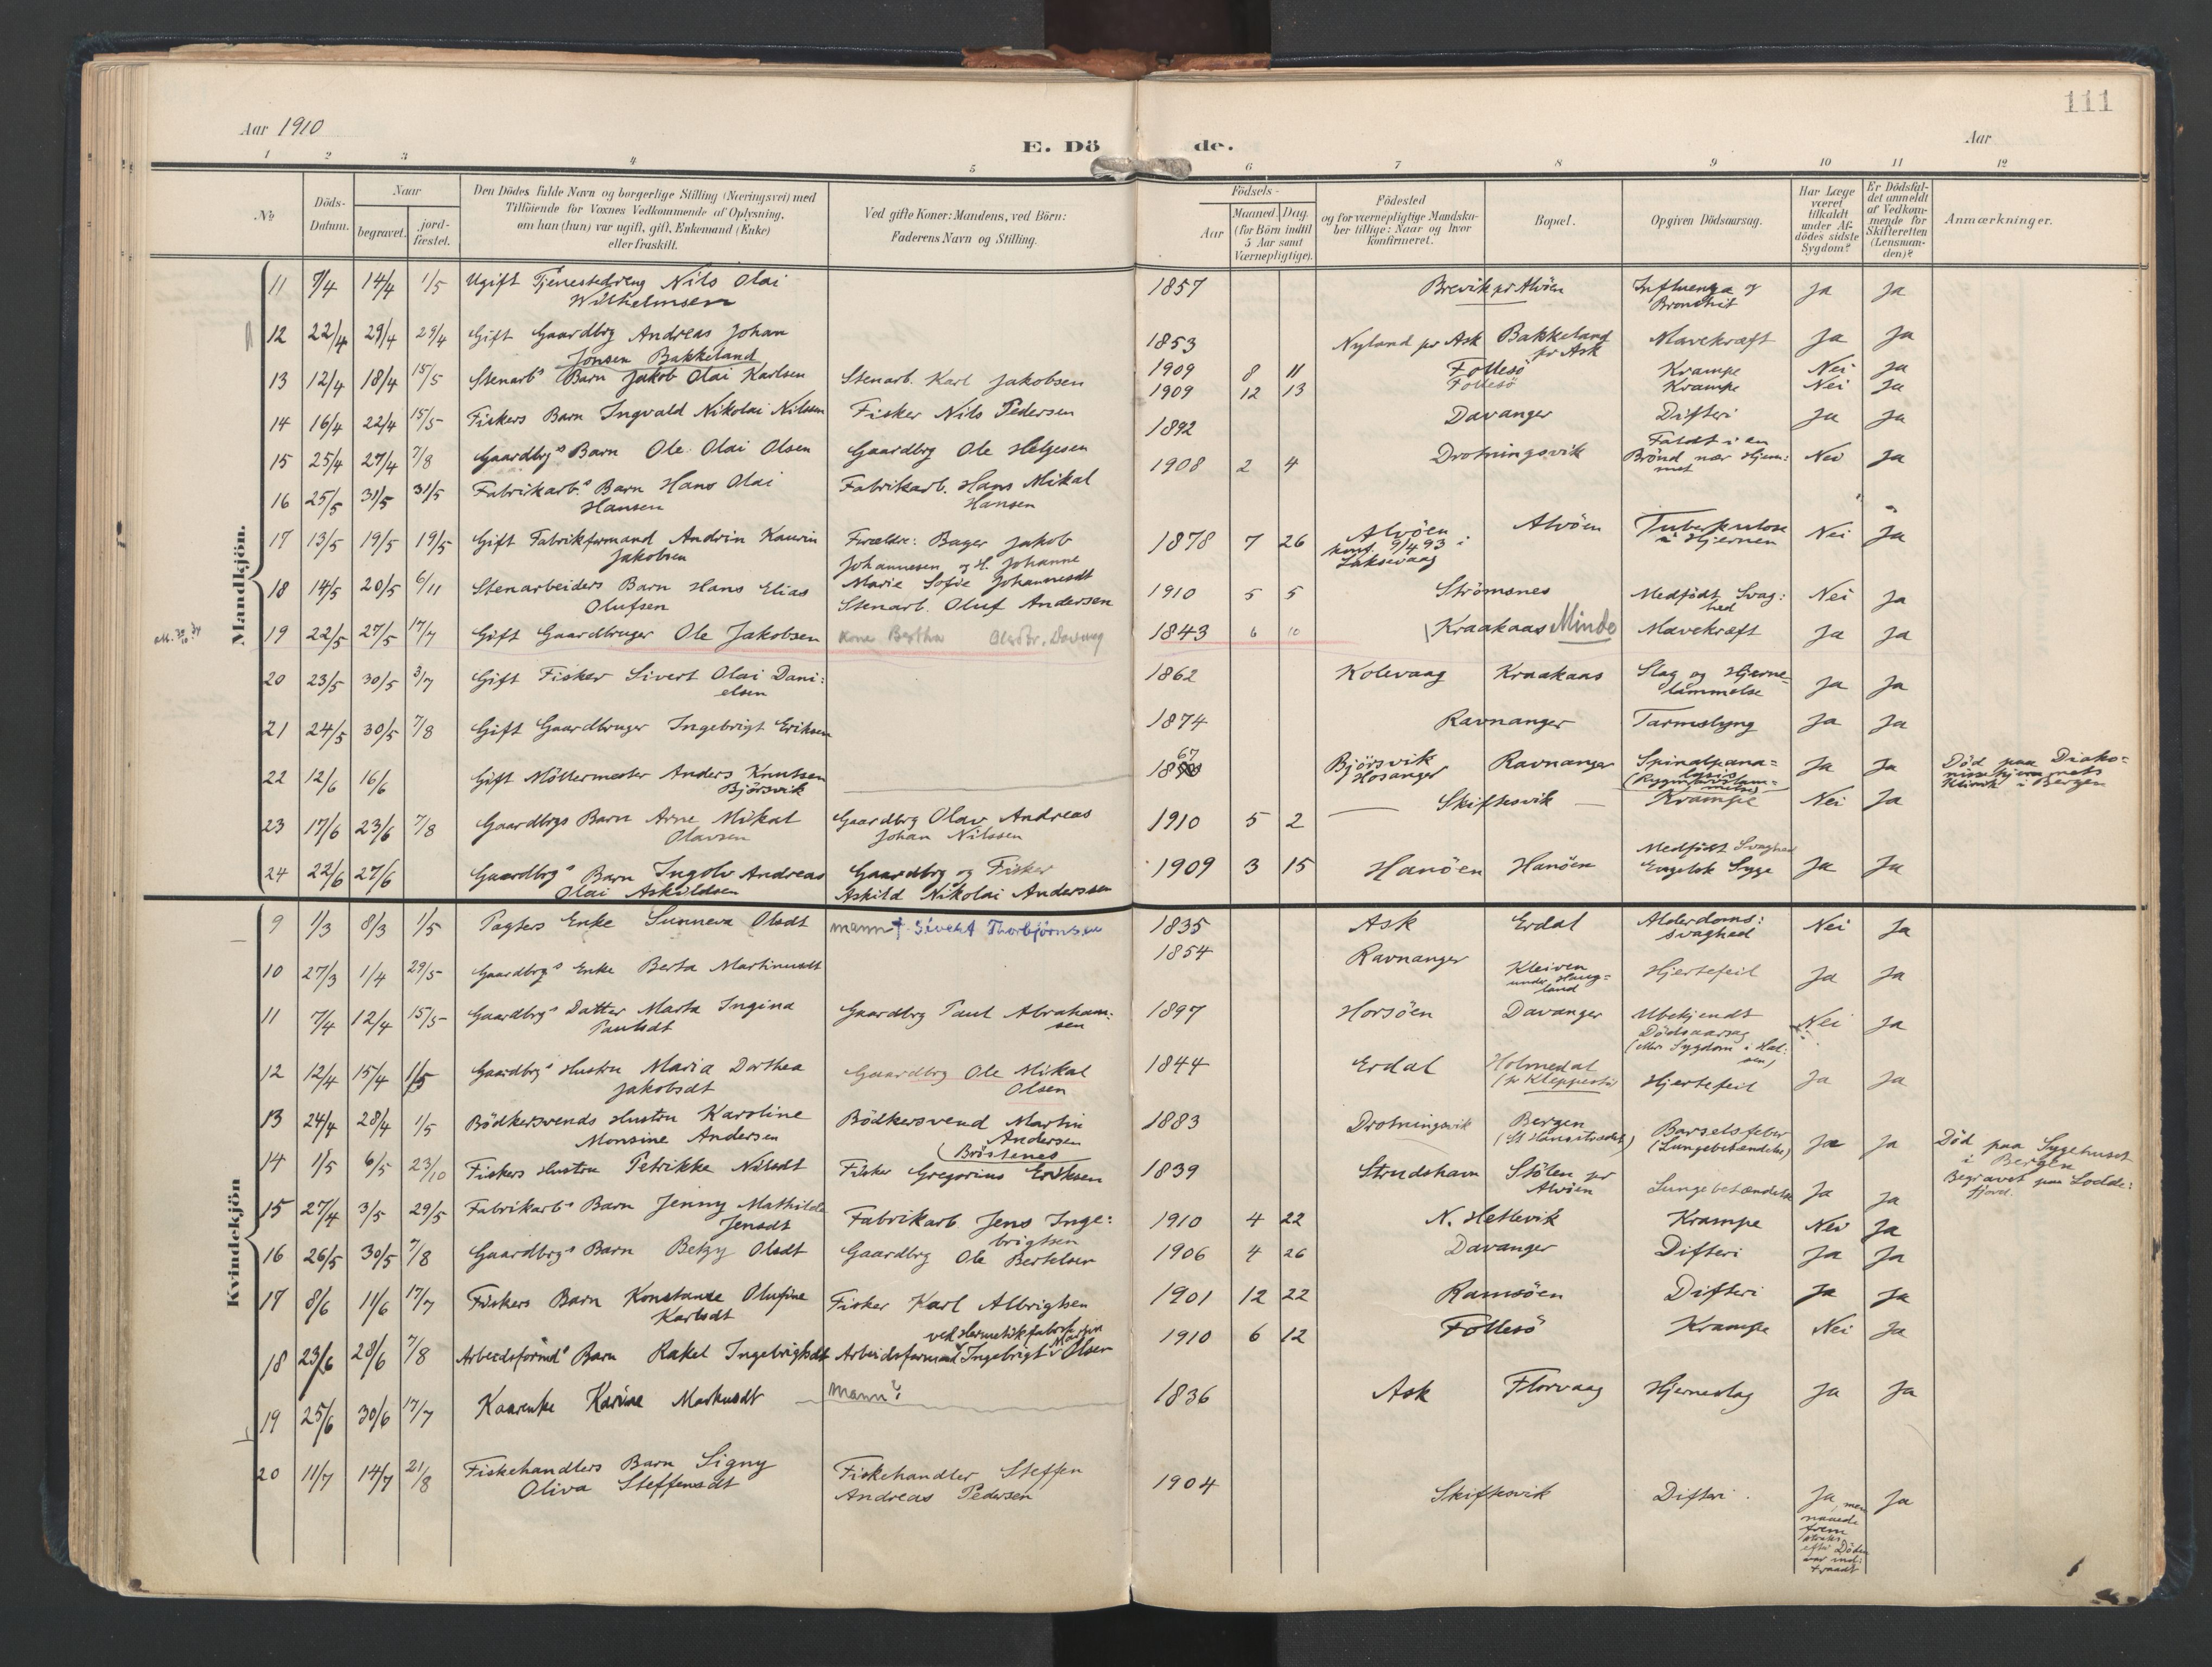 111
Aar 1910
E. Dö de.
Aar
1 2 3 4 5 6 7 8 9 10 11 12
№
Döds-Datum.
Naar
begravet.
jord-fæstet.
Den Dödes fulde Navn og borgerlige Stilling (Næringsvei) med
Tilföiende for Voxnes Vedkommende af Oplysning,
om han (hun) var ugift, gift, Enkemand (Enke)
eller fraskilt.
Ved gifte Koner: Mandens, ved Börn:
Faderens Navn og Stilling.
Födsels-
Aar
Maaned. Dag.
(for Börn indtil
5 Aar samt
Værnepligtige).
Födested
og for værnepligtige Mandska-
ber tillige: Naar og hvor
konfirmeret.
Bopæl.
Opgiven Dödsaarsag.
Har Læge
været
tilkaldt
under Af-
dödes sidste
Sygdom?
Er Dödsfal-
det anmeldt
af Vedkom-
mende for
Skifteretten
(Lensman-
den)?
Anmærkninger.
Mandkjön.
11 7/4 14/4 1/5 Ugift Tjenestedreng Nils Olai 1857 Brevik pr Alvöen Influenza og Ja Ja
Wilhelmsen Bronchit
12 22/4 29/4 29/4 Gift Gaardbrg Andreas Johan 1853 Nyland pr Ask Bakkeland Mavekræft Ja Ja
Jonsen Bakkeland pr Ask
13 12/4 18/4 15/5 Stenarbs Barn Jakob Olai Karlsen Stenarb. Karl Jakobsen 1909 8 11 Follesö Krampe Nei Ja
14 16/4 22/4 15/5 Fiskers Barn Ingvald Nikolai Nilssen Fisker Nils Pedersen 1909 12 13 Follesö Krampe Nei Ja
15 25/4 27/4 7/8 Gaardbrgs Barn Ole Olai Olsen Gaardbrg Ole Helgesen 1892 Davanger Difteri Ja Ja
16 25/5 31/5 31/5 Fabrikarbs Barn Hans Olai Fabrikarb. Hans Mikal 1908 2 4 Drotningsvik Faldt i en Nei Ja
Hansen Hansen Brönd nær Hjem:
met
17 13/5 19/5 19/5 Gift Fabrikformand Andrin Kaurin Forældre: Bager Jakob 1878 7 26 Alvöen Alvöen Tuberkulose Nei Ja
Jakobsen Johannesen og H. Johanne konf. 9/4 93 i i Hjernen
Marie Sofie Johannesdt Laksevaag
18 14/5 20/5 6/11 Stenarbeiders Barn Hans Elias Stenarb. Oluf Andersen 1910 5 5 Strömsnes Medfödt Svag: Nei Ja
Olufsen hed
19 22/5 27/5 17/7 Gift Gaardbruger Ole Jakobsen Kone Bertha 1843 6 10 Kraakaas Minde Mavekræft Ja Ja
20 23/5 30/5 3/7 Gift Fisker Sivert Olai Dani: 1862 Kolevaag Kraakaas Slag og Hjerne Ja Ja
elsen lammelse
21 24/5 30/5 7/8 Gift Gaardbruger Ingebrigt Eriksen 1874 Ravnanger Tarmslyng Ja Ja
22 12/6 16/6 Gift Möllermester Anders Knutsen 1867 Björsvik Ravnanger Spinalpara= Ja Ja Död paa Diako=
Björsvik Hosanger lysis nissehjemmets
Klinik i Bergen
23 17/6 23/6 7/8 Gaardbrgs Barn Arne Mikal Gaardbrg Olav Andreas 1910 5 2 Skiftesvik Krampe Nei Ja
Olavsen Johan Nilssen
24 22/6 27/6 Gaardbrgs Barn Ingolv Andreas Gaardbrg og Fisker 1909 3 15 Hanöen Hanöen Medfödt Svaghed Ja Ja
Olai Askildsen Askild Nikolai Anderssen Engelsk Syge
Kvindekjön
9 1/3 8/3 1/5 Pagters Enke Sunneva Olsdt mann † Sivert Thorbjørnsen 1835 Ask Erdal Alderdoms: Nei Ja
svaghed
10 27/3 1/4 29/5 Gaardbrgs Enke Berta Martinusdt 1854 Ravnanger Kleiven Hjertefeil Ja Ja
under Haug=
land
11 7/4 12/4 15/5 Gaardbrgs Datter Marta Ingina Gaardbrg Paul Abraham: 1897 Horsöen Davanger Ubekjendt Nei Ja
Paulsdt sen Dödsaarsag
(eller Sygdom i Hal:
sen)
12 12/4 15/4 1/5 Gaardbrgs Hustru Maria Dorthea Gaardbrg Ole Mikal 1844 Erdal Holmedal Hjertefeil Ja Ja
Jakobsdt Olsen (pr Kleppestö)
13 24/4 28/4 1/5 Bödkersvends Hustru Karoline Bödkersvend Martin 1883 Drotningsvik Bergen Barselsfeber Ja Ja Död paa Sygehuset
Monsine Andersen Andersen (St Hansstrædet) (Lungebetændelse) i Bergen
(Bröstenes Begravet paa Lodde:
fjord.
14 1/5 6/5 23/10 Fiskers Hustru Petrikke Nilsdt Fisker Gregorius Eriksen 1839 Strudshavn Stölen pr Lungebetændelse Ja Ja
Alvöen
15 27/4 3/5 29/5 Fabrikarbs Barn Jenny Mathilde Fabrikarb. Jens Inge: 1910 4 22 N. Hetlevik Krampe Nei Ja
Jensdt brigtsen
16 26/5 30/5 7/8 Gaardbrgs Barn Betzy Olsdt Gaardbrg Ole Bertelsen 1906 4 26 Davanger Difteri Ja Ja
17 8/6 11/6 17/7 Fiskers Barn Konstanse Olufine Fisker Karl Albrigtsen 1901 12 22 Ramsöen Difteri Ja Ja
Karlsdt
ved Hermetikfabrik
18 23/6 28/6 7/8 Arbeidsformds Barn Rakel Ingebrigtsdt Arbeidsformand Ingebrigt Martin Olsen 1910 6 12 Follesö Krampe Nei Ja
19 25/6 30/6 17/7 Kaarenke Karine Markusdt mann? 1836 Ask Florvaag Hjerneslag Ja Ja
20 11/7 14/7 21/8 Fiskehandlers Barn Signy Fiskehandler Steffen 1904 Skiftesvik Difteri Ja, men Ja
Oliva Steffensdt Andreas Pedersen naaede
frem
straks
efter Döden
var ind:
traadt